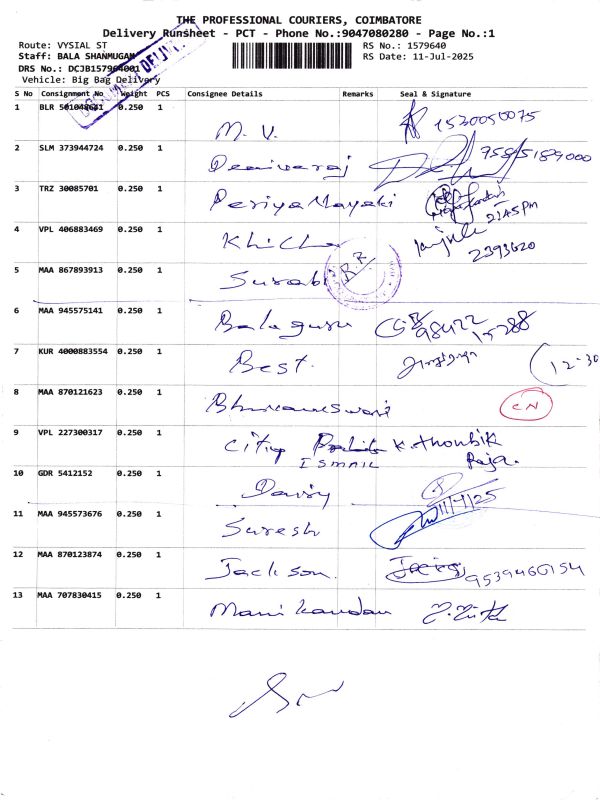 THE PROFESSIONAL COURIERS, COIMBATORE
Delivery Runsheet - PCT - Phone No.:9047080280 - Page No.:1
Route: VYSIAL ST RS No.: 1579640
Staff: BALA SHANMUGAM RS Date: 11-Jul-2025
DRS No.: DCJB157964001
Vehicle: Big Bag Delivery
S No Consignment No Weight PCS Consignee Details Remarks Seal & Signature
1 BLR 501048681 0.250 1 M. V. 1530050075
2 SLM 373944724 0.250 1
3 TRZ 30085701 0.250 1 Periya Nayaki 2:45 PM
4 VPL 406883469 0.250 1 2393620
5 MAA 867893913 0.250 1 Surabi
6 MAA 945575141 0.250 1 Balaguru 98422 15288
7 KUR 4000883554 0.250 1 Best. 12-30
8 MAA 870121623 0.250 1 Bhuvaneswari CN
9 VPL 227300317 0.250 1 City K. Thoubik
ISMAIL Raja.
10 GDR 5412152 0.250 1
11 MAA 945573676 0.250 1 Suresh 11/7/25
12 MAA 870123874 0.250 1 Jackson. 9539460154
13 MAA 707830415 0.250 1 Mani kandan